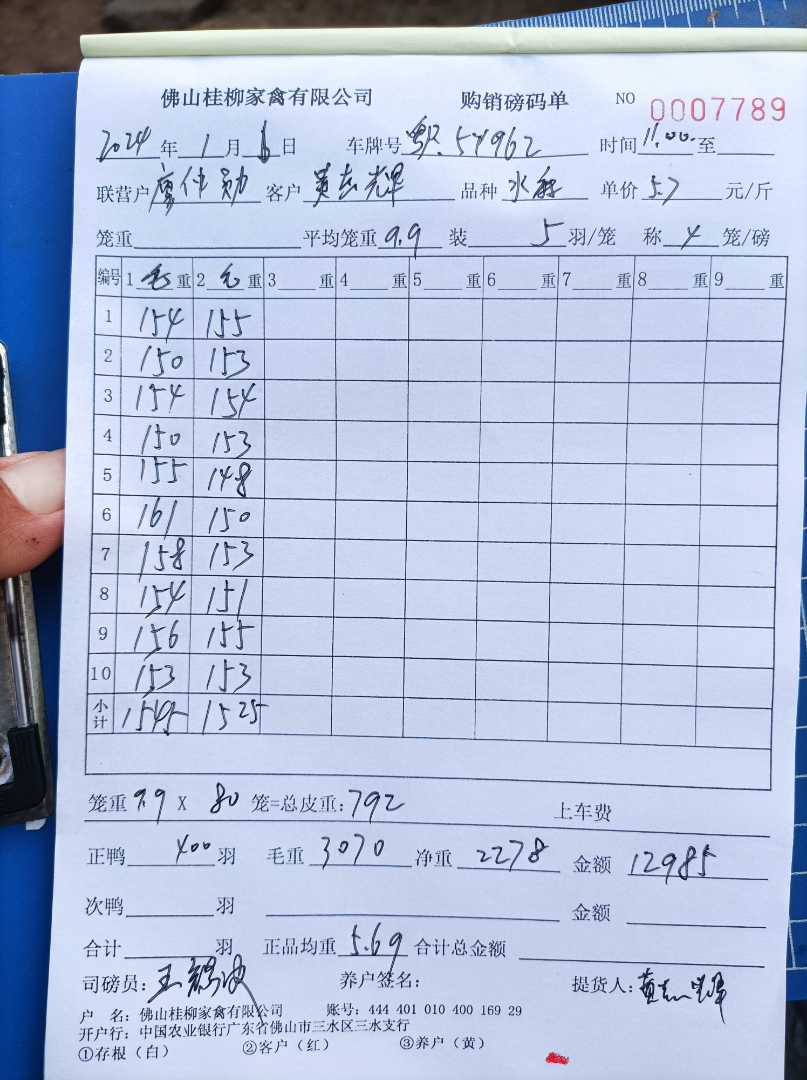 佛山桂柳家禽有限公司 购销磅码单 NO 0007789
2024年1月6日 车牌号 粤R54962 时间 11:00 至
联营户 廖仲勋 客户 黄志辉 品种 水 单价 5.7 元/斤
笼重 平均笼重 9.9 装 5 羽/笼 称 4 笼/磅
编号 1 毛 重 2 毛 重 3 重 4 重 5 重 6 重 7 重 8 重 9 重
1 154 155
2 150 153
3 154 154
4 150 153
5 155 148
6 161 150
7 158 153
8 154 151
9 156 155
10 153 153
小计 1545 1525
笼重 9.9 X 80 笼=总皮重: 792 上车费
正鸭 400 羽 毛重 3070 净重 2278 金额 12985
次鸭 羽 金额
合计 羽 正品均重 5.69 合计总金额
司磅员: 王 养户签名: 提货人: 黄志辉
户 名: 佛山桂柳家禽有限公司 账号: 444 401 010 400 169 29
开户行: 中国农业银行广东省佛山市三水区三水支行
①存根（白） ②客户（红） ③养户（黄）